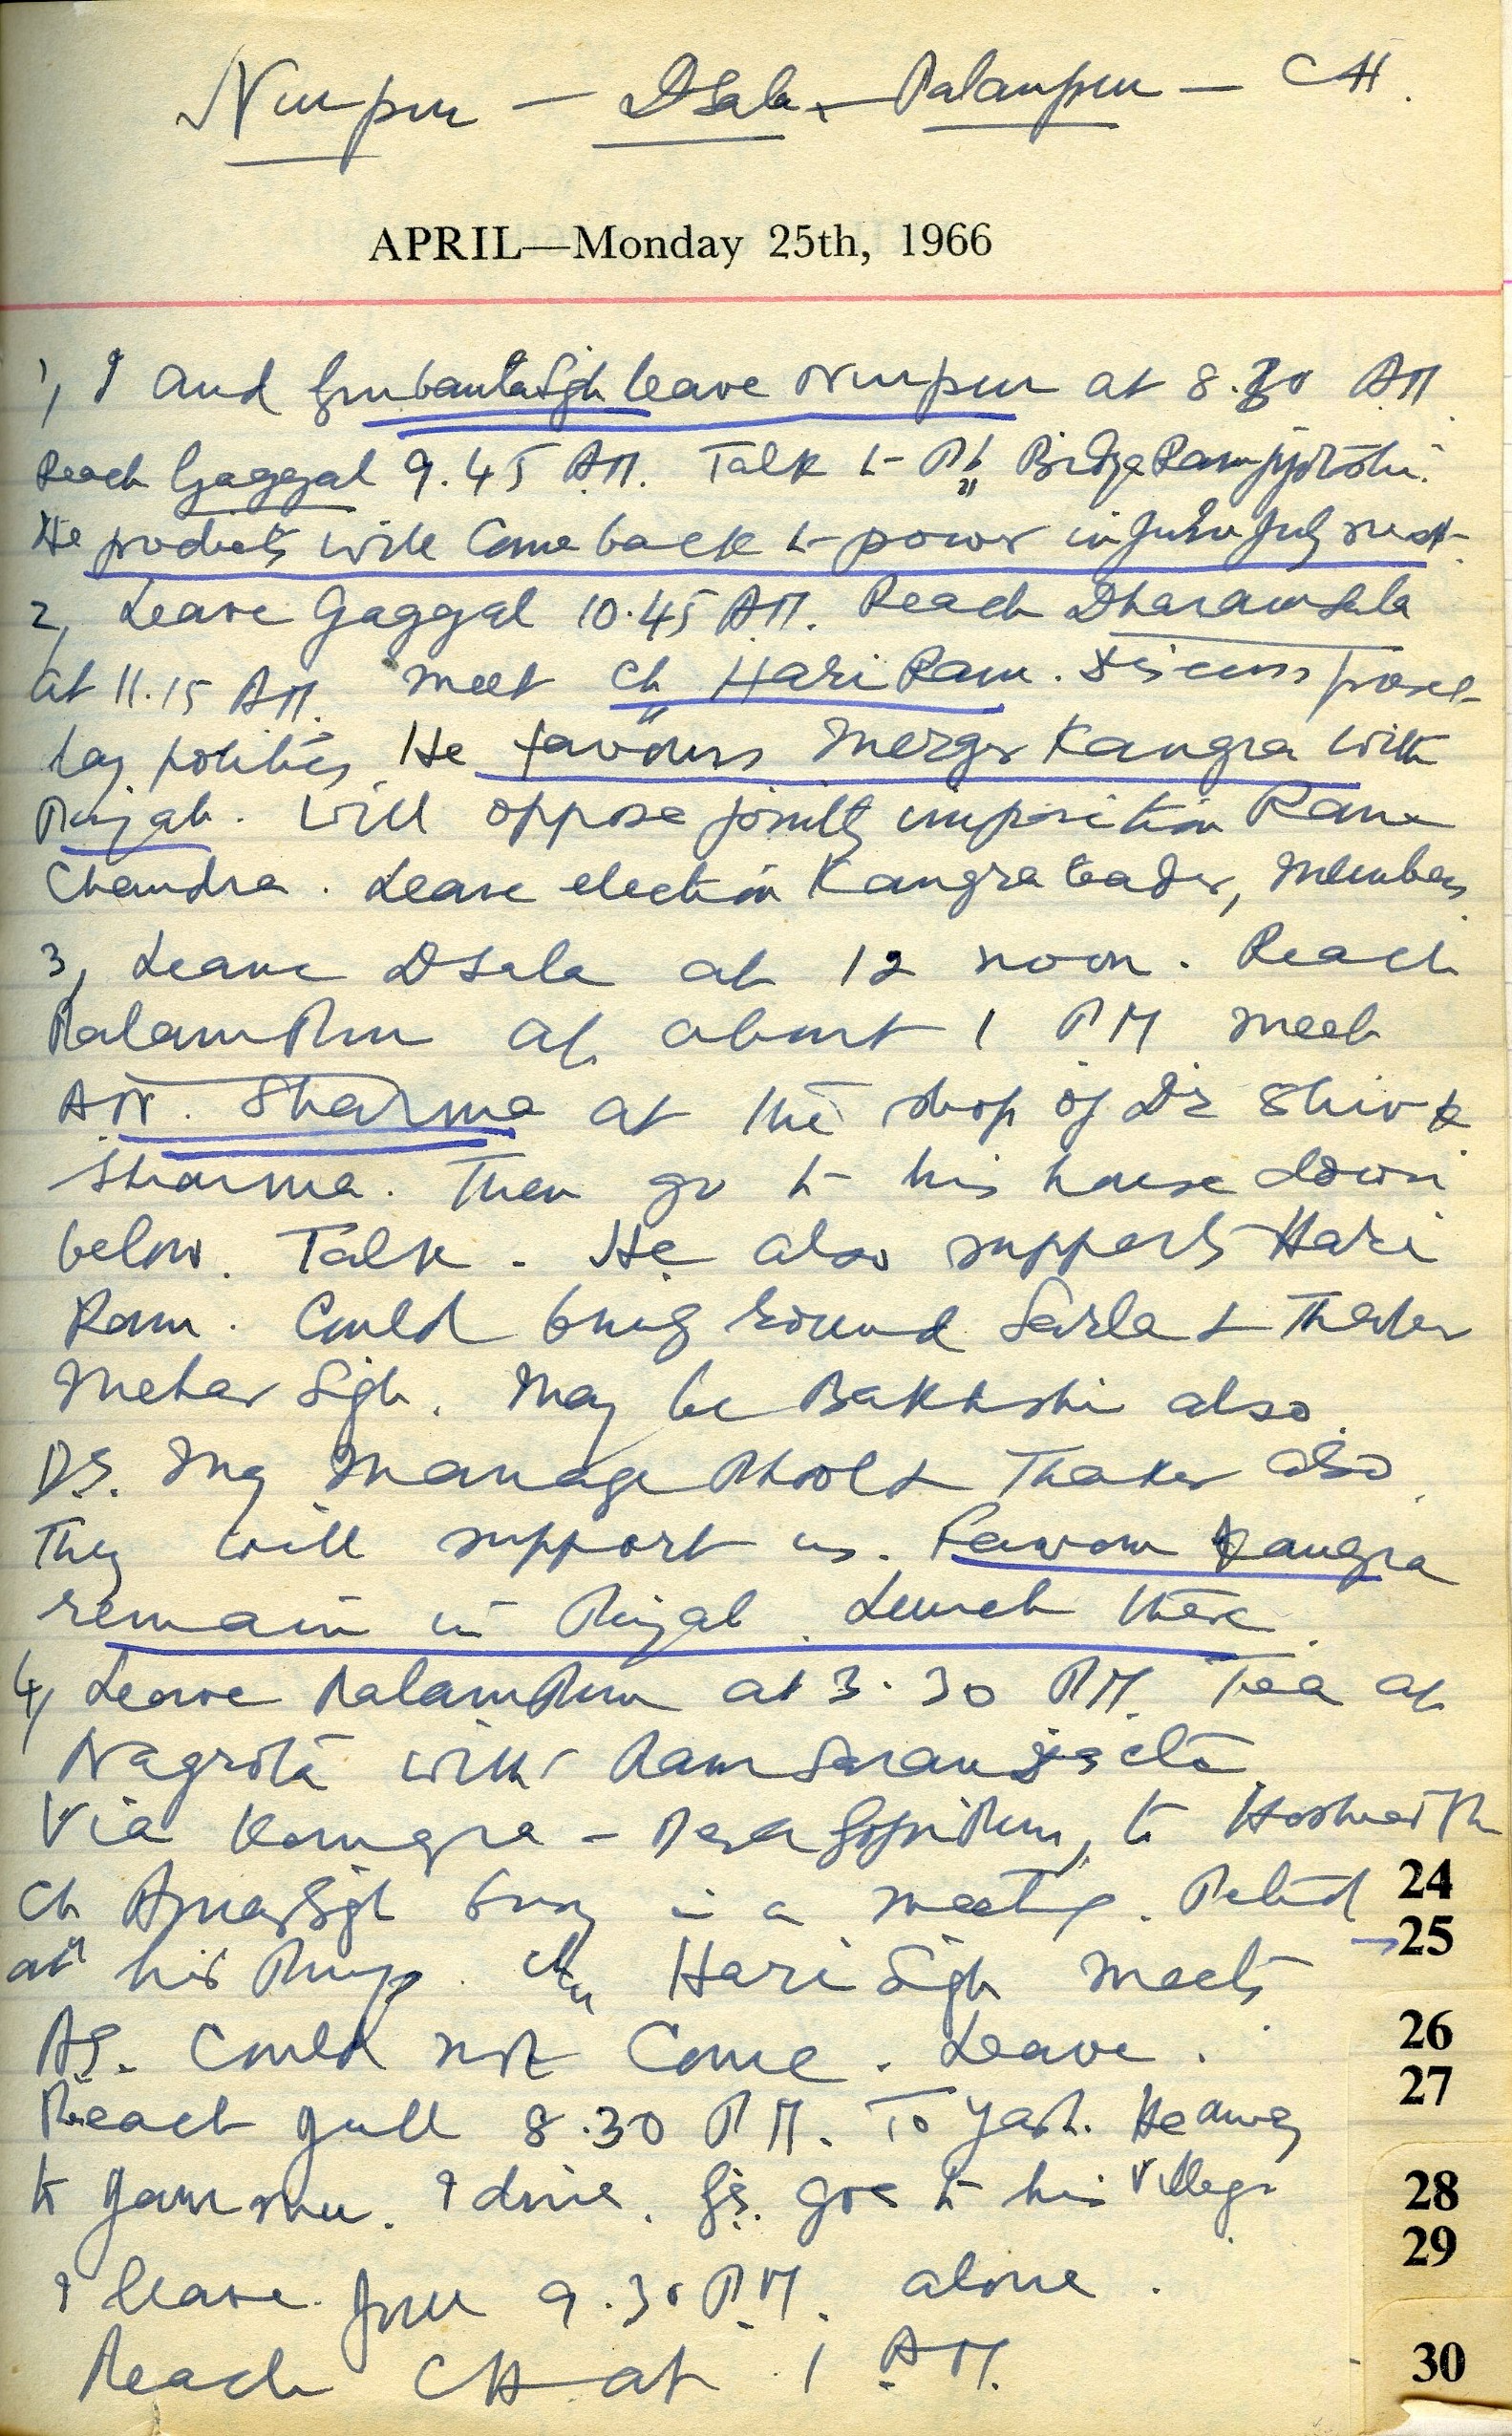 Nurpur — DSala — Palampur — CH.
APRIL—Monday 25th, 1966
1, I and Gurbanta Sgh leave Nurpur at 8.30 AM
Reach Gaggal 9.45 AM. Talk to Pt Ram Jyotshi.
He predicts will come back to power in June July next
2, Leave Gaggal 10.45 AM. Reach Dharamsala
at 11.15 AM. Meet Ch Hari Ram. Discuss present
day politics He favours merger Kangra with
Punjab. Will oppose jointly imposition Rama
Chandra. Leave election Kangra leader, members
3, Leave DSala at 12 noon. Reach
PalamPur at about 1 PM meet
AN. Sharma at the shop of Dr Shiv K
Sharma. Then go to his house down
below. Talk. He also supports Hari
Ram. Could bring round Sarla &
Mehar Sgh. May be Bakhshi also.
DS. may manage & Thaker also
They will support us. Favour Kangra
remain in Punjab. Lunch there.
4, Leave PalamPur at 3.30 PM. Tea at
Nagrota with Ram Saran etc
Via Kangra — Dera GopiPur, to
Ch Amar Sgh busy in a meeting.
at his Pump. Ch Hari Sgh meets
AS. Could not come. Leave.
Reach Jull 8.30 PM. To Yash. He away
to Jammu. I dine. GS. goes to his village
I leave Jull 9.30 PM. alone.
Reach CH at 1 AM.
24
25
26
27
28
29
30